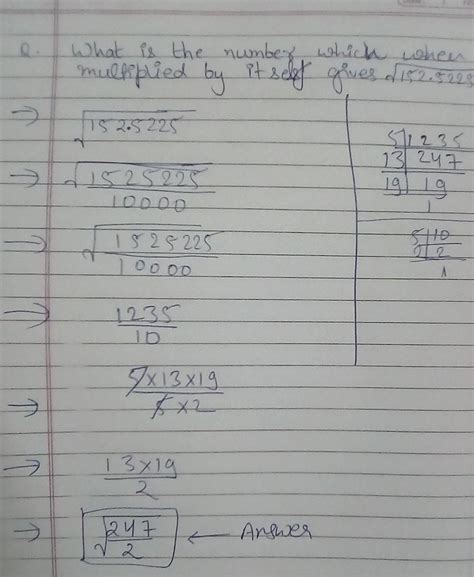 Q. What is the number which when
multiplied by itself gives √152.5225
→ √152.5225
→ √1525225/10000
→ √1525225/10000
→ 1235/10
→ 5×13×19/5×2
→ 13×19/2
→ √247/2 ← Answer
5|1235
13|247
19|19
1
5|10
2|2
1